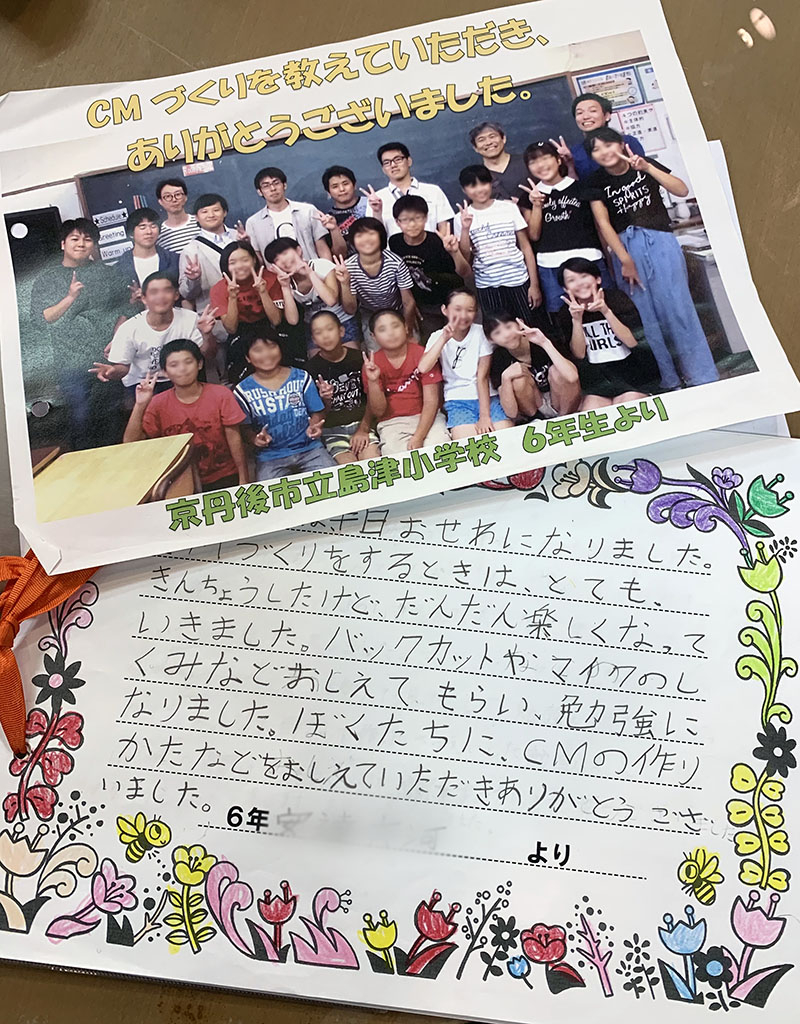 CM づくりを教えていただき、
ありがとうございました。
Schedule
Greeting
Warm up
In good
SPIRITS
Happy
京丹後市立島津小学校 6年生より
半日おせわになりました。
づくりをするときは、とても、
きんちょうしたけど、だんだん楽しくなって
いきました。バックカットやマイクのし
くみなどおしえてもらい、勉強に
なりました。ぼくたちに、CMの作り
かたなどをおしえていただきありがとう ござ
いました。
6年
より